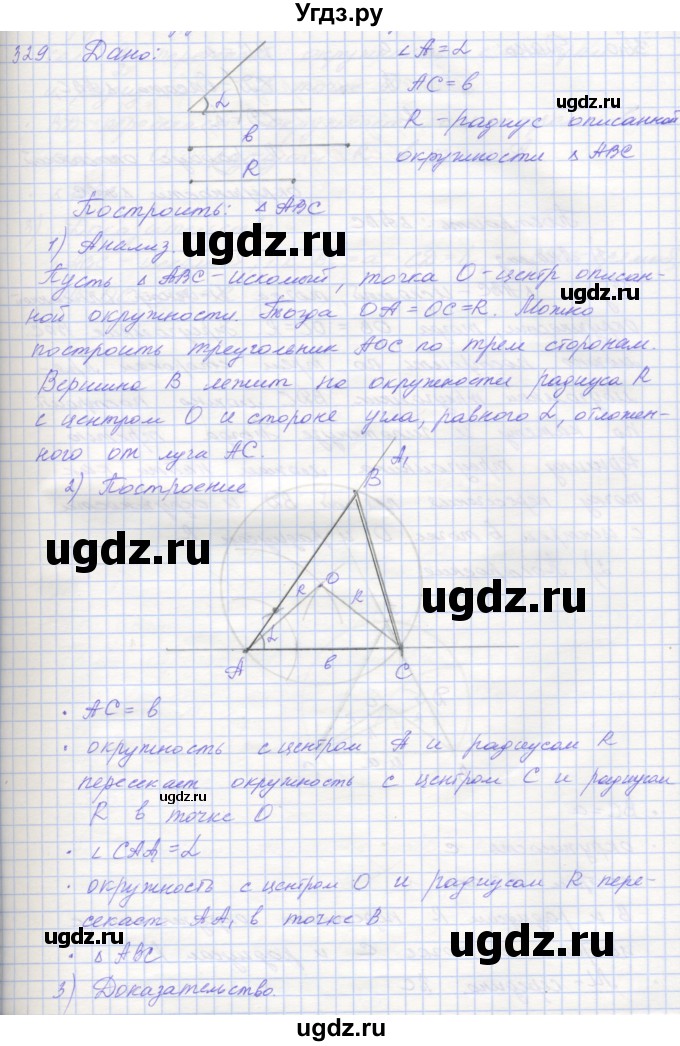 Угдз.ру
329 Дано:
∠A = α
AC = b
R - радиус описанной
окружности △ABC
α
b
R
Построить: △ABC
1) Анализ
Пусть △ABC - искомый, точка O - центр описан-
ной окружности. Тогда OA = OC = R. Можно
построить треугольник AOC по трем сторонам.
Вершина B лежит на окружности радиуса R
с центром O и стороне угла, равного α, отложен-
ного от луча AC.
2) Построение
A₁
B
O
R
R
α
A
b
C
· AC = b
· окружность с центром A и радиусом R
пересекает окружность с центром C и радиусом
R в точке O
· ∠CAA₁ = α
· окружность с центром O и радиусом R пере-
секает AA₁ в точке B
· △ABC
3) Доказательство.
ugdz.ru
ugdz.ru
ugdz.ru
ugdz.ru
ugdz.ru
ugdz.ru
ugdz.ru
ugdz.ru
ugdz.ru
ugdz.ru
ugdz.ru
ugdz.ru